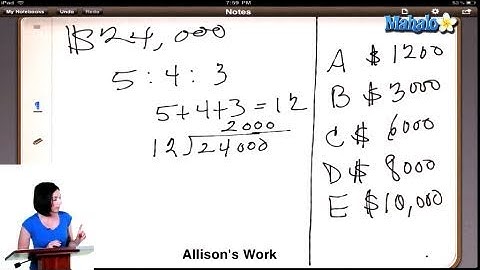 iPad
7:59 PM
My Notebooks Undo Redo
Notes
Mahalo
$24,000
5 : 4 : 3
5+4+3=12
2000
12)24000
A $1200
B $3000
C $6000
D $8000
E $10,000
Allison's Work